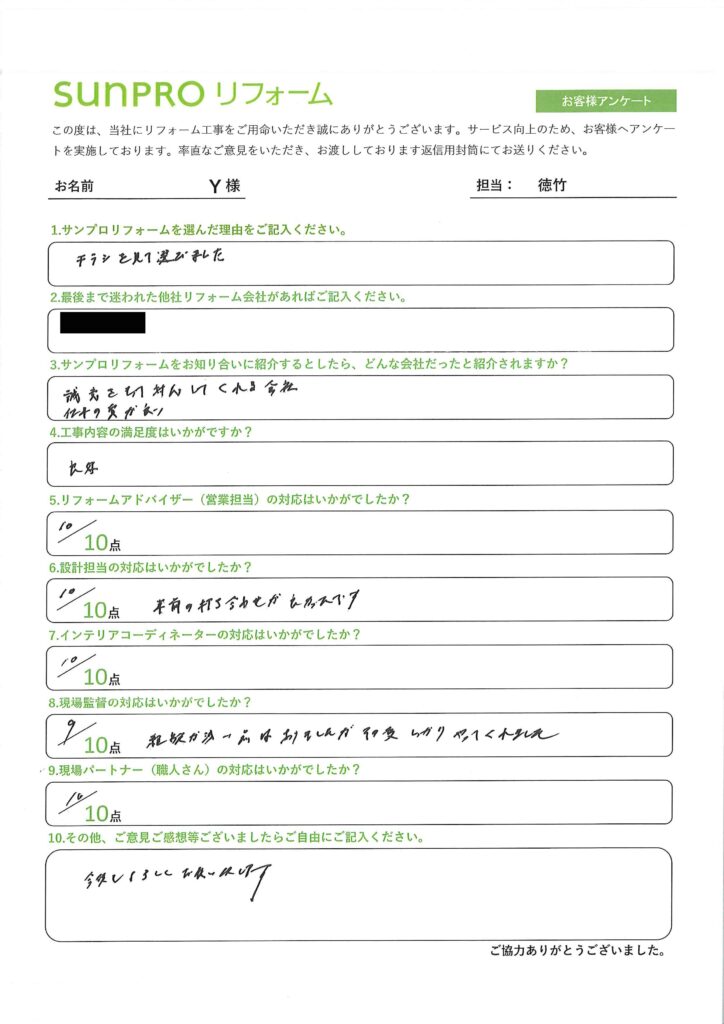 SUNPRO リフォーム
お客様アンケート
この度は、当社にリフォーム工事をご用命いただき誠にありがとうございます。サービス向上のため、お客様へアンケー
トを実施しております。率直なご意見をいただき、お渡ししております返信用封筒にてお送りください。
お名前 Y 様 担当： 徳竹
1.サンプロリフォームを選んだ理由をご記入ください。
チラシを見て選びました
2.最後まで迷われた他社リフォーム会社があればご記入ください。
3.サンプロリフォームをお知り合いに紹介するとしたら、どんな会社だったと紹介されますか？
誠意をもって対応してくれる会社
仕事の質が良い
4.工事内容の満足度はいかがですか？
良好
5.リフォームアドバイザー（営業担当）の対応はいかがでしたか？
10/10点
6.設計担当の対応はいかがでしたか？
10/10点 事前の打ち合わせが良かったです
7.インテリアコーディネーターの対応はいかがでしたか？
10/10点
8.現場監督の対応はいかがでしたか？
9/10点 はありましたが しっかりやってくれました
9.現場パートナー（職人さん）の対応はいかがでしたか？
10/10点
10.その他、ご意見ご感想等ございましたらご自由にご記入ください。
今後もよろしくお願い致します
ご協力ありがとうございました。